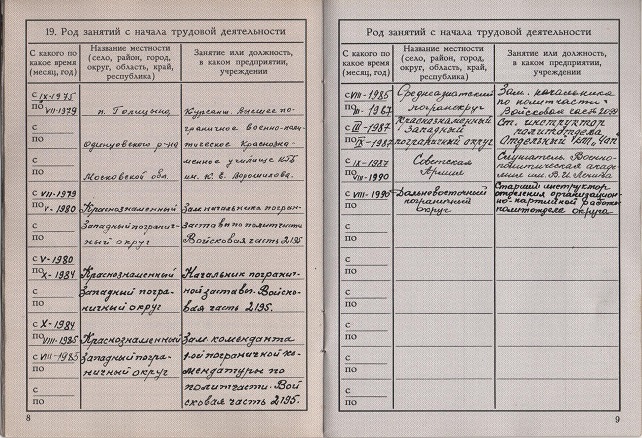 19. Род занятий с начала трудовой деятельности
С какого по какое время (месяц, год)
Название местности (село, район, город, округ, область, край, республика)
Занятие или должность, в каком предприятии, учреждении
с IX-1975
по VII-1979
п. Голицыно
Одинцовского р-на
Московской обл.
Курсант. Высшее по-
граничное военно-поли-
тическое Краснозна-
менное училище КГБ
им. К. Е. Ворошилова.
с
по
с
по
с VII-1979
по V-1980
Краснознаменный
Западный погранич-
ный округ
Зам. начальника погран-
заставы по политчасти
Войсковая часть 2195.
с
по
с V-1980
по X-1984
Краснознаменный
Западный погра-
ничный округ
Начальник погранич-
ной заставы. Войско-
вая часть 2195.
с
по
с X-1984
по VIII-1985
Краснознаменный
Западный погра-
ничный округ
Зам. коменданта
пограничной ко-
мендатуры по
политчасти. Вой
сковая часть 2195.
с VIII-1985
по
с
по
8
Род занятий с начала трудовой деятельности
С какого по какое время (месяц, год)
Название местности (село, район, город, округ, область, край, республика)
Занятие или должность, в каком предприятии, учреждении
с VIII-1985
по III-1987
Среднеазиатский
погранокруг
Зам. начальника
по политчасти
Войсковая часть
с III-1987
по IX-1987
Краснознаменный
Западный
пограничный округ
Ст. инструктор
политотдела
с IX-1987
по VIII-1990
Советская
Армия
Слушатель Военно-
политическая акаде
мия им. В. И. Ленина
с VIII-1990
по
Дальневосточный
пограничный
округ
Старший инструктор
отделения организацион-
но-партийной работы
политотдела округа
с
по
с
по
с
по
с
по
с
по
с
по
9